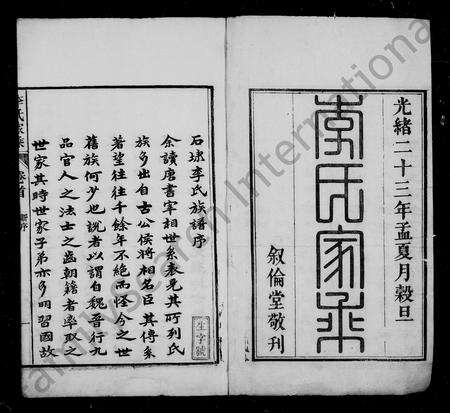 光緒二十三年孟夏月穀旦
李氏家乘
敘倫堂敬刊
石埭李氏族譜序
余讀唐書宰相世系表見其所列氏
族多出自古公侯將相名臣其傳系
著望往往千餘年不絕而怪今之世
舊族何少也說者以謂自魏晉行九
品官人之法士之齒朝籍者率取之
世家其時世家子弟亦多明習國故
生字號
李氏家乘
卷首
序